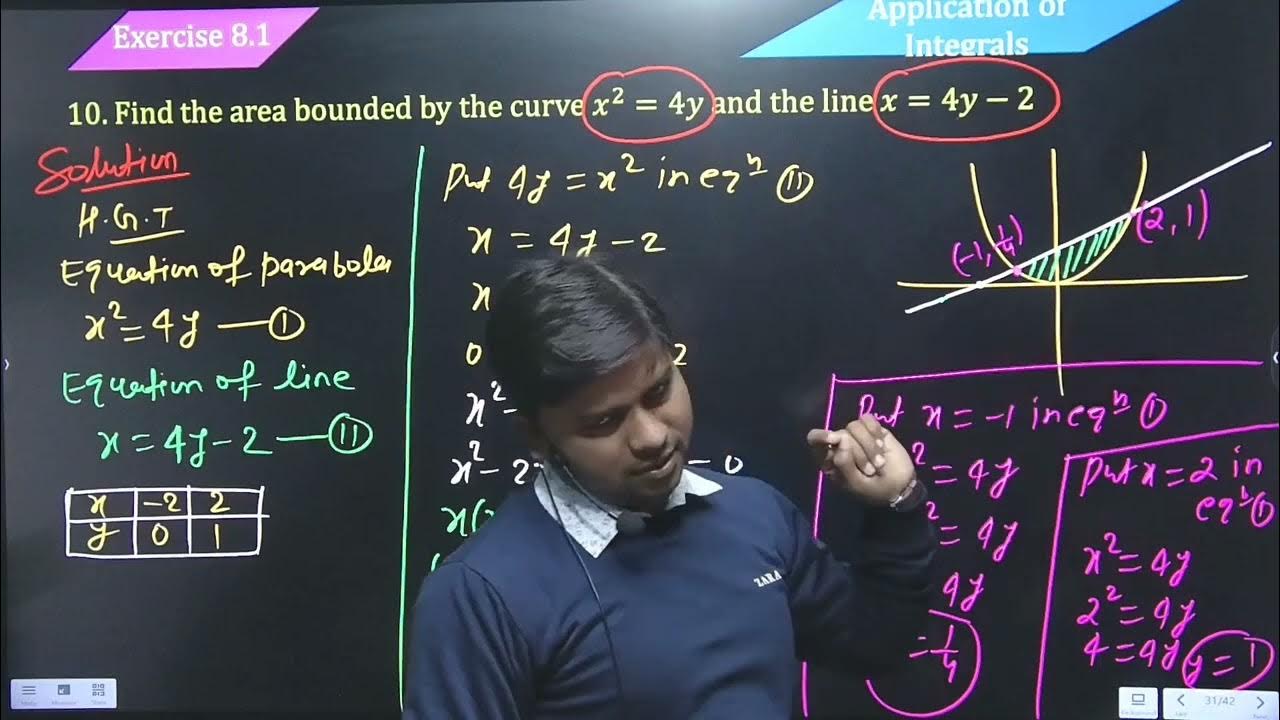 Exercise 8.1
Application of
Integrals
10. Find the area bounded by the curve x² = 4y and the line x = 4y − 2
Solution
H.G.T
Equation of parabola
x² = 4y — ①
Equation of line
x = 4y − 2 — ⑪
x −2 2
y 0 1
Put 4y = x² in eqⁿ ⑪
x = 4y − 2
x
0 2
x² −
x² − 2 = 0
x(
(−1, 1/4)
(2, 1)
Put x = −1 in eqⁿ ①
² = 4y
² = 4y
4y
= 1/4
Put x = 2 in
eqⁿ ①
x² = 4y
2² = 4y
4 = 4y y = 1
ZARA
31/42